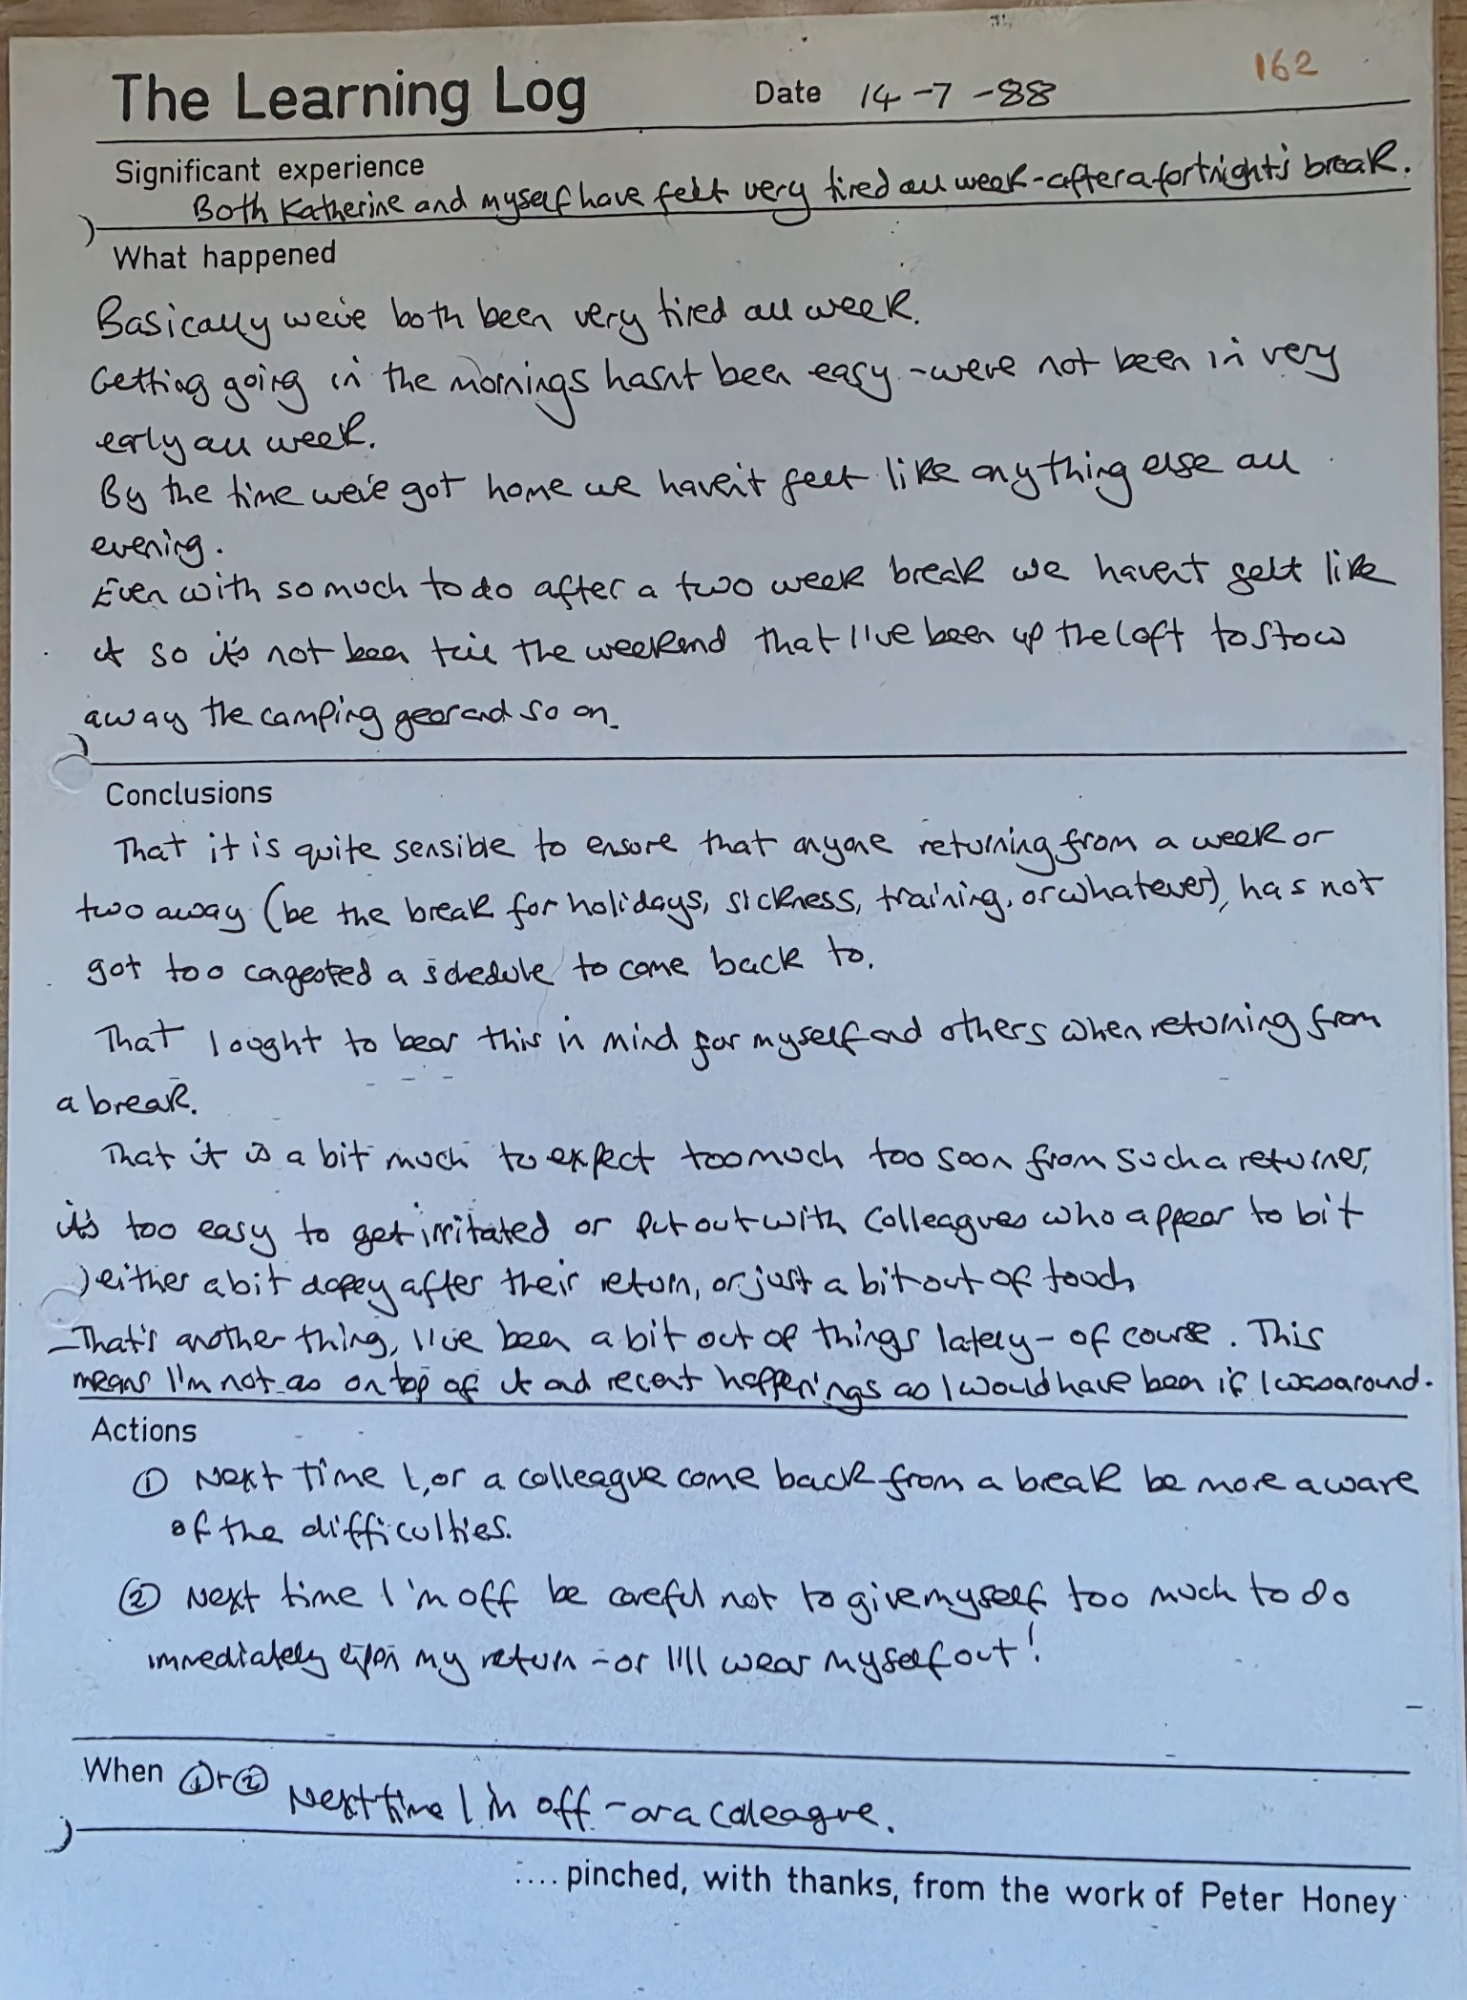 The Learning Log Date 14-7-88 162
Significant experience
Both Katherine and myself have felt very tired all week - after a fortnight's break.
What happened
Basically we've both been very tired all week.
Getting going in the mornings hasn't been easy - we've not been in very
early all week.
By the time we've got home we haven't felt like anything else all
evening.
Even with so much to do after a two week break we haven't felt like
it so it's not been till the weekend that I've been up the loft to stow
away the camping gear and so on.
Conclusions
That it is quite sensible to ensure that anyone returning from a week or
two away (be the break for holidays, sickness, training, or whatever), has not
got too congested a schedule to come back to.
That I ought to bear this in mind for myself and others when returning from
a break.
That it is a bit much to expect too much too soon from such a returner,
it's too easy to get irritated or put out with colleagues who appear to bit
either a bit dopey after their return, or just a bit out of touch
That's another thing, I've been a bit out of things lately - of course. This
means I'm not as on top of it and recent happenings as I would have been if I was around.
Actions
① Next time I, or a colleague come back from a break be more aware
of the difficulties.
② Next time I'm off be careful not to give myself too much to do
immediately upon my return - or I'll wear myself out!
When ① or ② Next time I'm off - or a coleague.
.... pinched, with thanks, from the work of Peter Honey